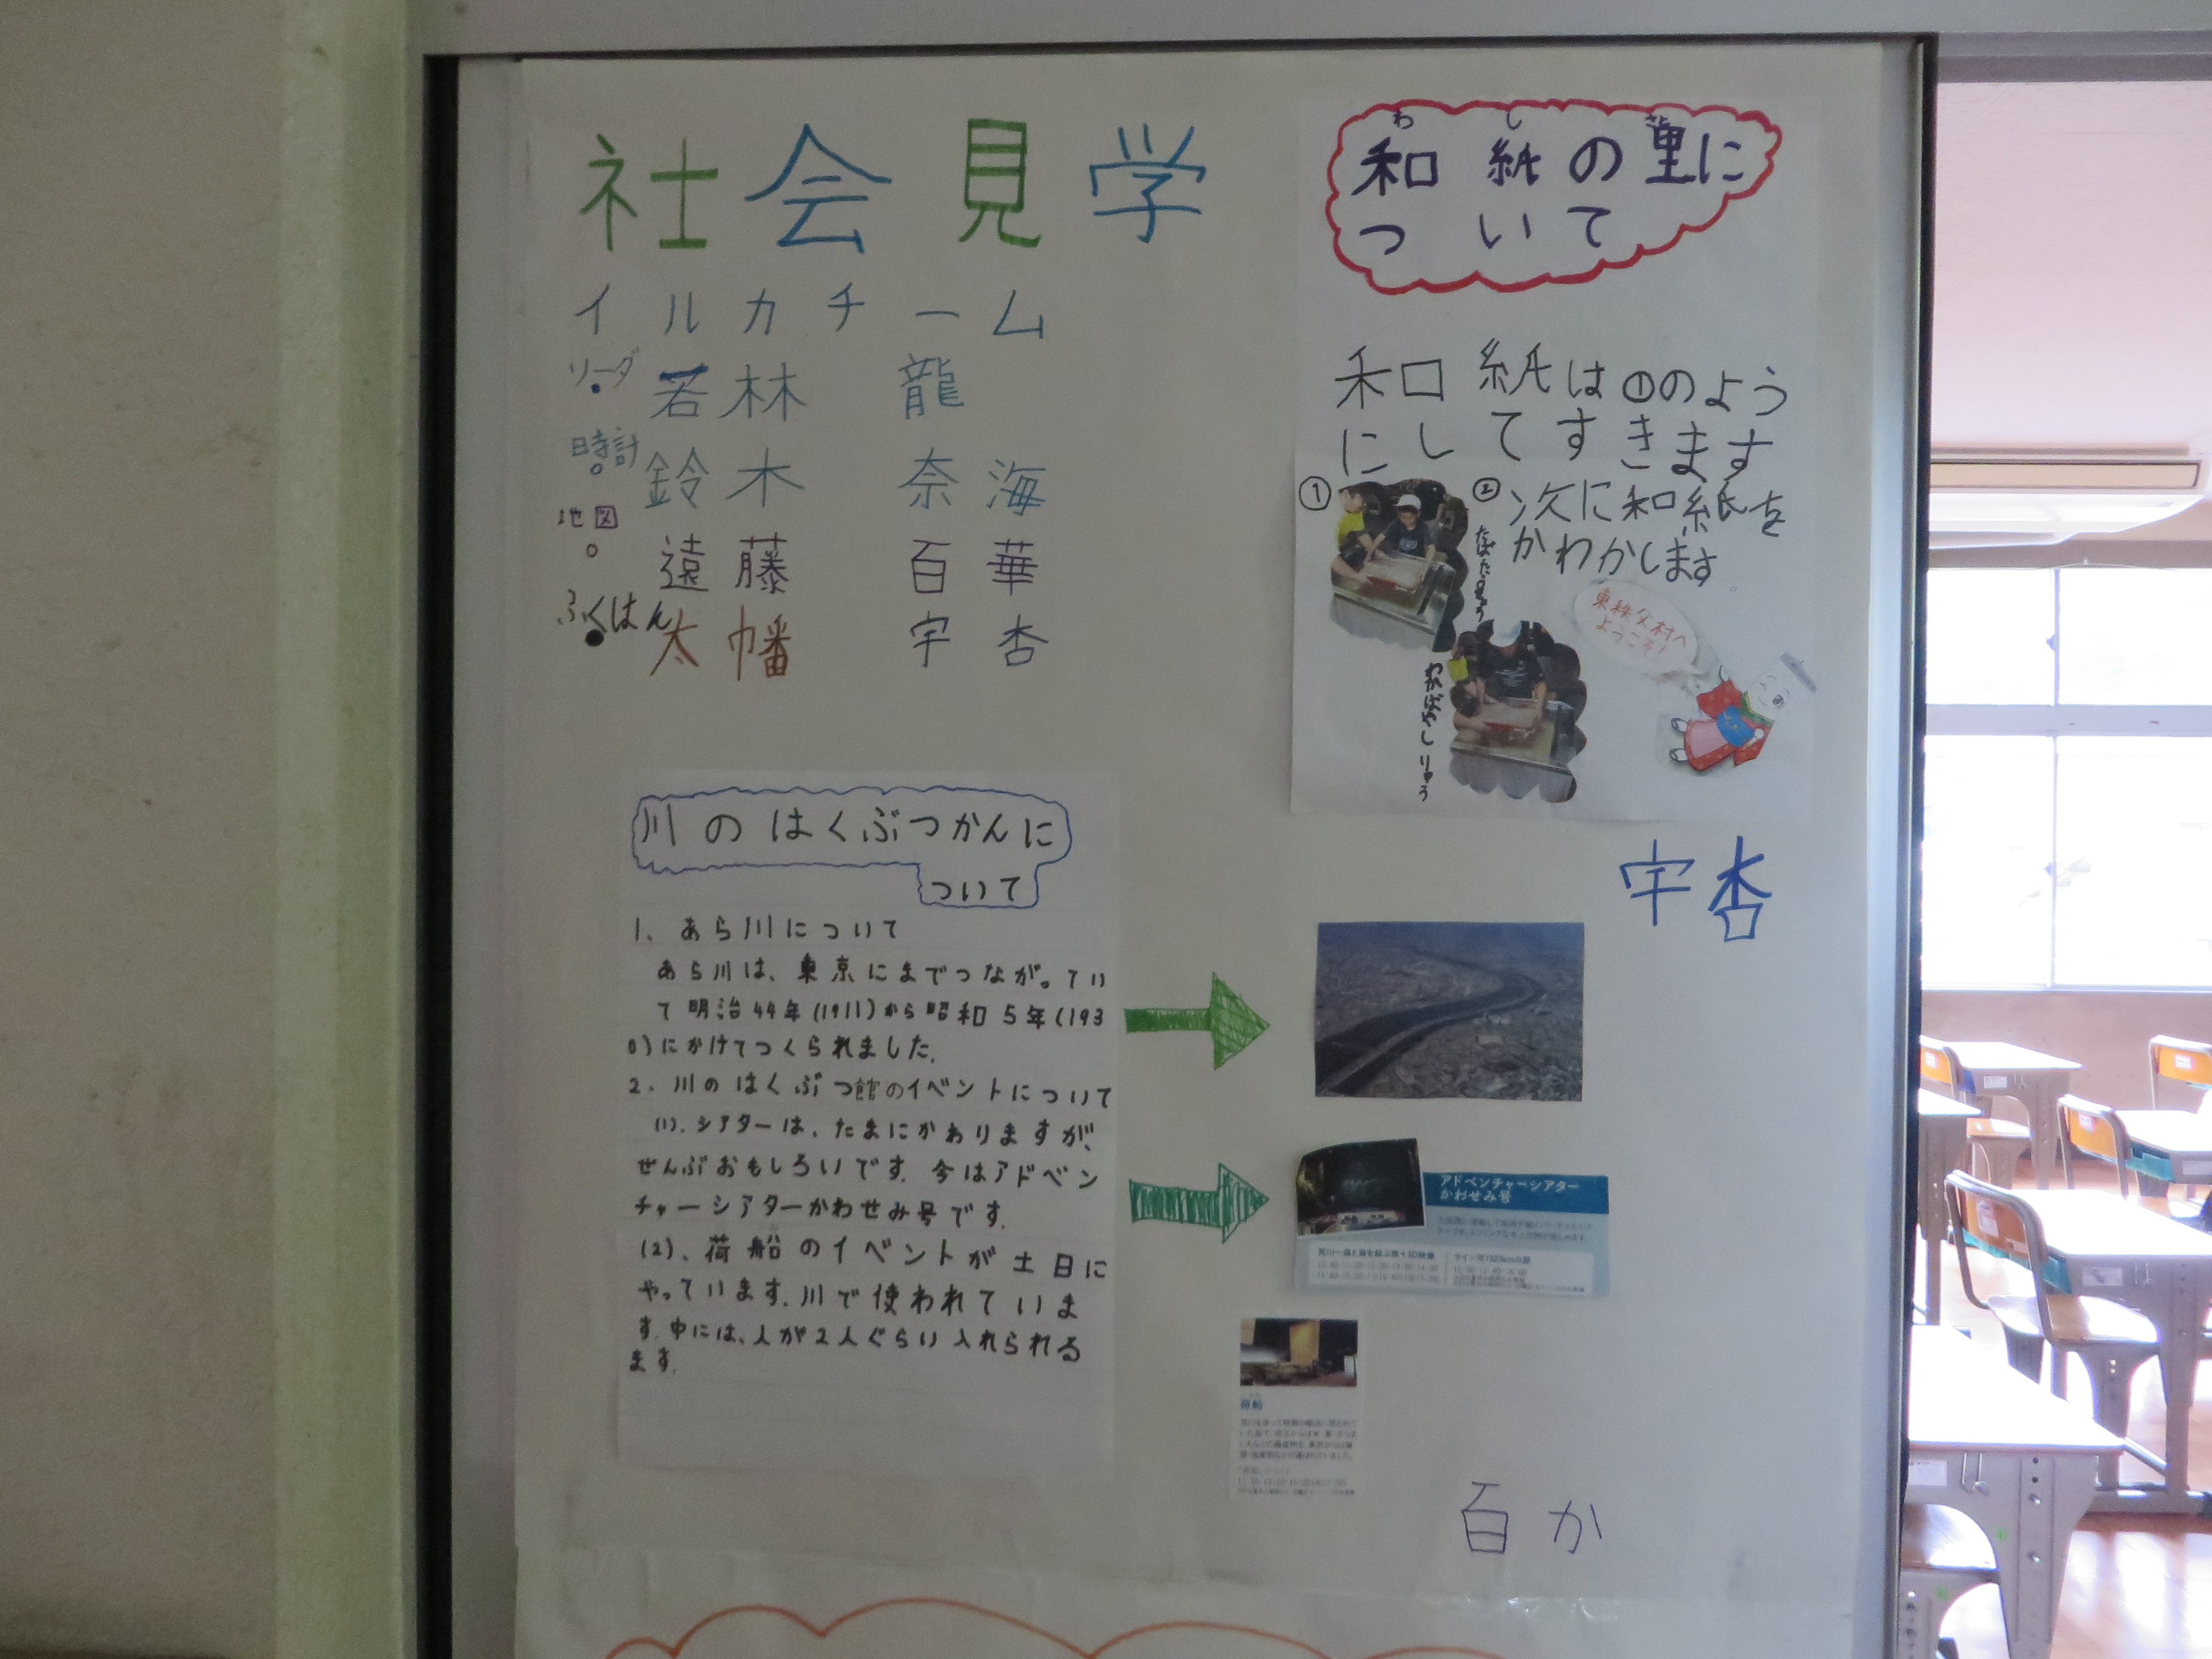 社会見学
イルカチーム
リーダ
若林 龍
時計
鈴木 奈海
地図
遠藤 百華
ふくはん
太幡 宇杏
わし
和紙の里に
ついて
和紙は①のよう
にしてすきます
①
② 次に和紙を
かわかします
わかばやしりゅう
東秩父村へ
ようこそ！
宇杏
川のはくぶつかんに
ついて
1、あら川について
あら川は、東京にまでつながってい
て明治44年(1911)から昭和5年(193
0)にかけてつくられました。
2. 川のはくぶつ館のイベントについて
(1). シアターは、たまにかわりますが、
せんぶおもしろいです。今はアドベン
チャーシアターかわせみ号です。
(2)、荷船のイベントが土日に
やっています。川で使われていま
す。中には、人が2人ぐらい入れられる
ます。
アドベンチャーシアター
かわせみ号
荷船
百か